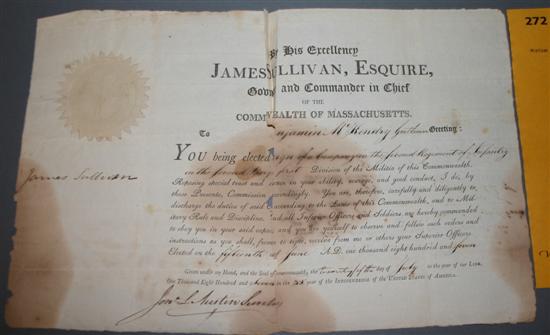 By His Excellency
JAMES SULLIVAN, ESQUIRE,
Gov and Commander in Chief
OF THE
COMM WEALTH OF MASSACHUSETTS.
To njamin Mc Kendry Gentleman Greeting:
YOU being elected ign of a Company in the second Regiment of Infantry
in the second Brig first Division of the Militia of this Commonwealth.
Reposing special trust and in your ability, courage, and good conduct, I do, by
these Presents, Commission accordingly. You are, therefore, carefully and diligently to
discharge the duties of said according to the Laws of this Commonwealth, and to Mili-
tary Rule and Discipline. And all Inferior Officers and Soldiers are hereby commanded
to obey you in your said capac and you are yourself to observe and follow such orders and
instructions as you shall, from to receive from me or others your Superior Officers
Elected on the fifteenth of June A.D. one thousand eight hundred and seven
Given under my Hand, and the Seal of Commonwealth, the twenty fifth day of July in the year of our LORD,
One Thousand Eight Hundred and seven in the year of the INDEPENDENCE of the UNITED STATES OF AMERICA.
James Sullivan
Jon L Austin Secretary
272